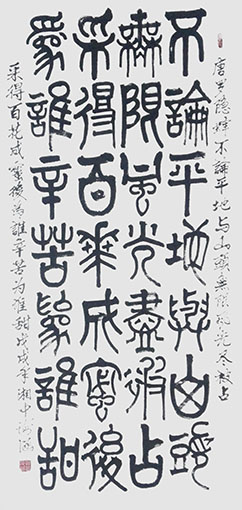 唐罗隱蜂不論平地与山頭無限風光尽被占
不論平地與山頭
無限風光盡被占
采得百華成蜜後
爲誰辛苦爲誰甜
采得百花成蜜後為誰辛苦為誰甜戊戌年湘中